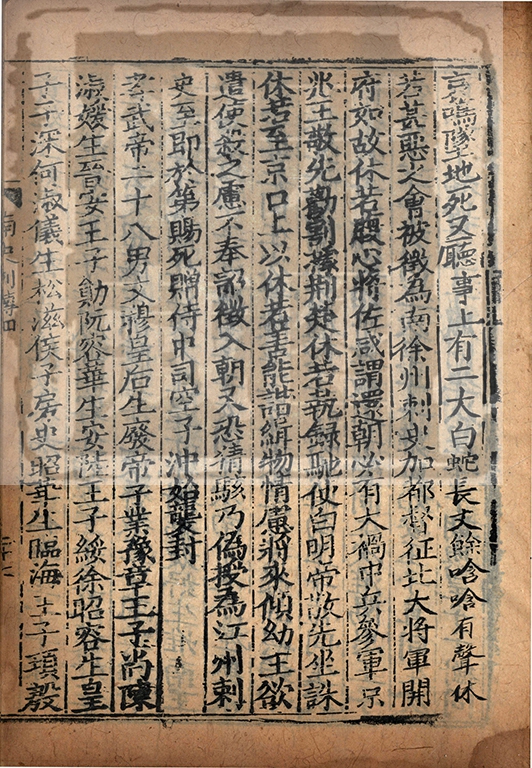 哀鳴墜地死又廳事上有二大白蛇長丈餘唅唅有聲休
若甚惡之會被徵為南徐州刺史加都督征北大將軍開
府如故休若腹心將佐咸謂還朝必有大禍中兵參軍京
兆王敬先勸割據荊楚休若執錄馳使白明帝敬先坐誅
休若至京口上以休若善能諧緝物情慮將來傾幼王欲
遣使殺之慮不奉詔徵入朝又恐猜駭乃偽授為江州刺
史至即於第賜死贈侍中司空子沖始襲封
孝武帝二十八男文穆皇后生廢帝子業豫章王子尚陳
淑媛生晉安王子勛阮容華生安陸王子綏徐昭容生皇
子子深何淑儀生松滋侯子房史昭華生臨海王子頊殷
南史列傳四